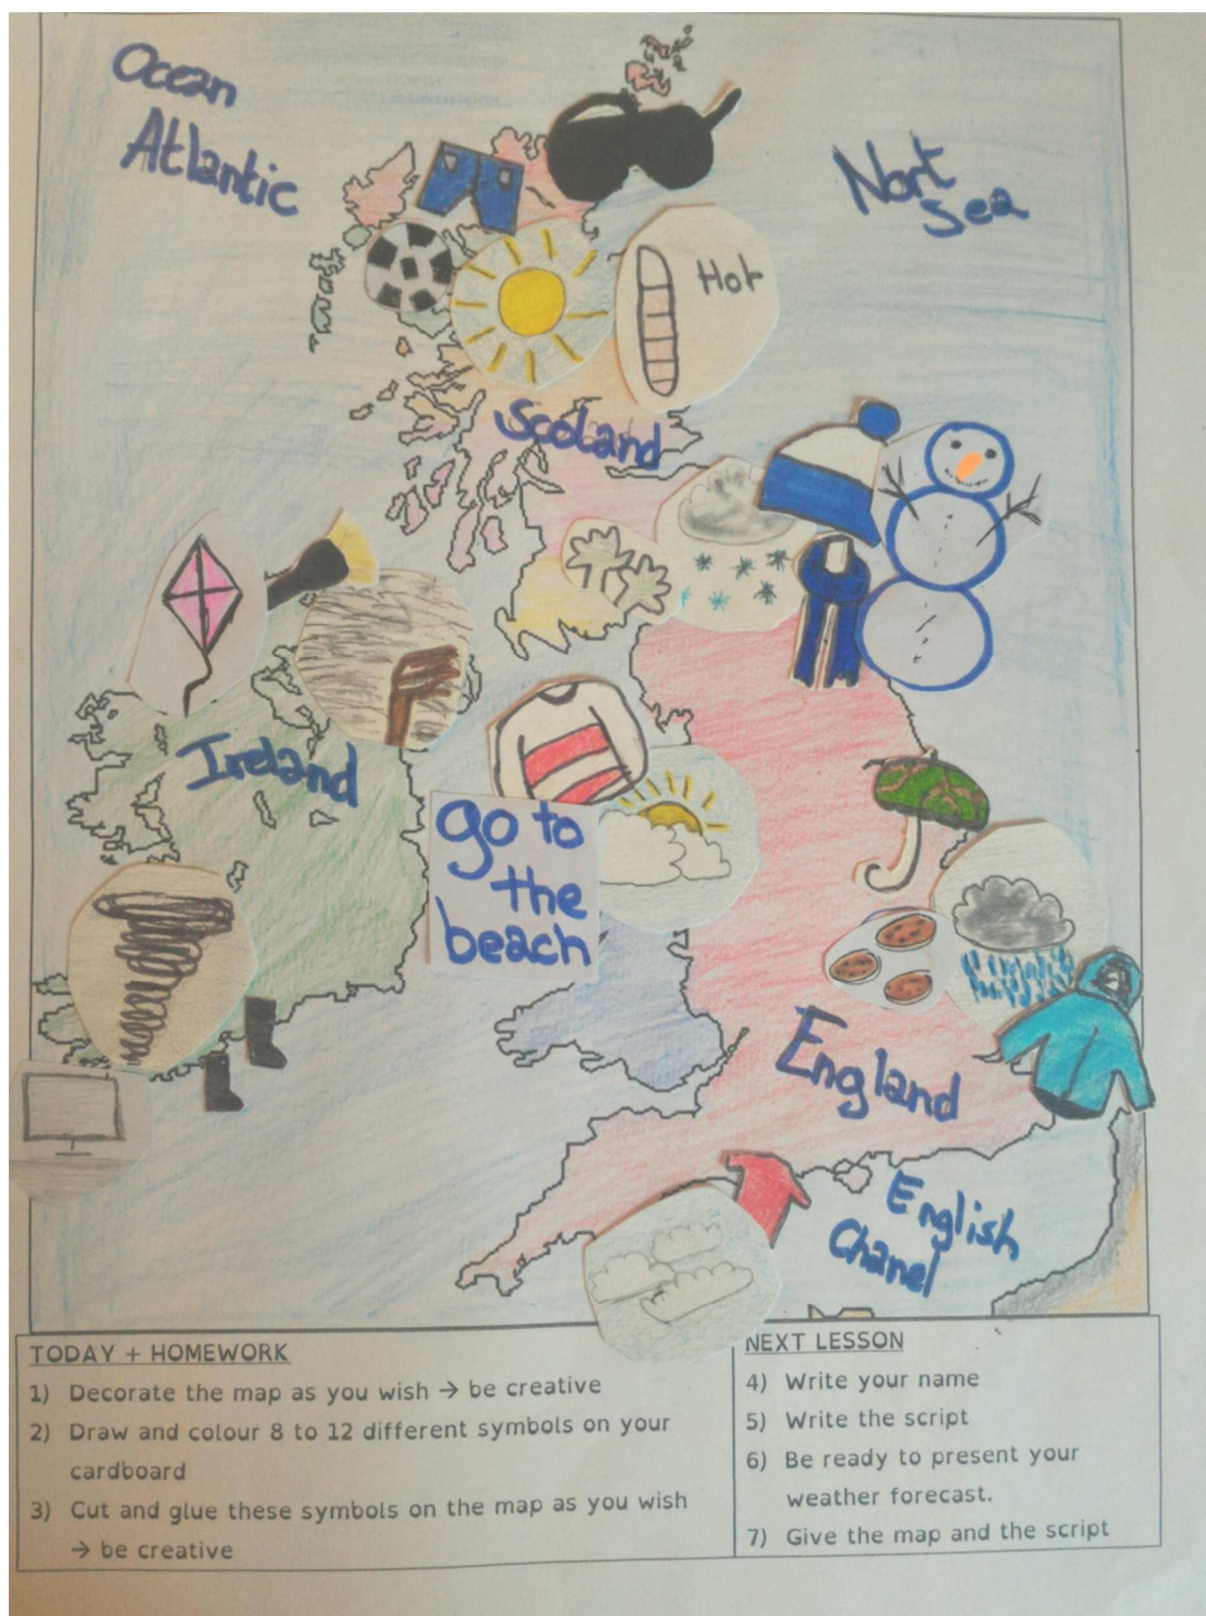 Ocean
Atlantic
Nort
sea
Hot
Scotland
Ireland
go to
the
beach
England
English
Chanel
TODAY + HOMEWORK
1) Decorate the map as you wish → be creative
2) Draw and colour 8 to 12 different symbols on your
cardboard
3) Cut and glue these symbols on the map as you wish
→ be creative
NEXT LESSON
4) Write your name
5) Write the script
6) Be ready to present your
weather forecast.
7) Give the map and the script